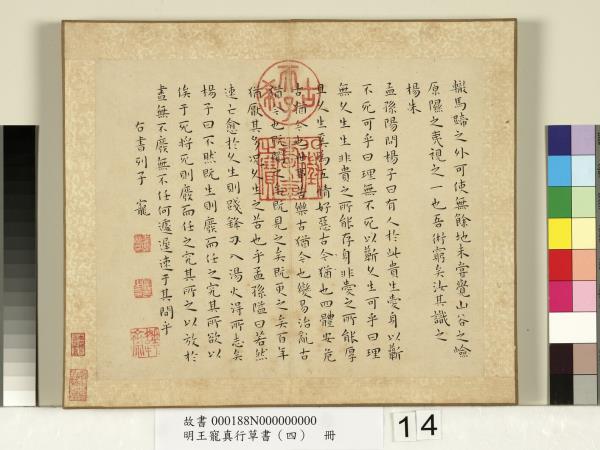 轍馬蹄之外可使無餘地未嘗覺山谷之嶮
原隰之夷視之一也吾術窮矣汝其識之
楊朱
孟孫陽問楊子曰有人於此貴生愛身以蘄
不死可乎曰理無不死以蘄久生可乎曰理
無久生生非貴之所能存身非愛之所能厚
且久生奚為五情好惡古今猶也四體安危
古猶今也世事苦樂古猶今也變易治亂古
猶今也既聞之矣既見之矣既更之矣百年
猶厭其多況久生之苦也乎孟孫陽曰若然
速亡愈於久生則踐鋒刃入湯火得所志矣
楊子曰不然既生則廢而任之究其所欲以
俟于死將死則廢而任之究其所之以放於
盡無不廢無不任何遽遲速于其間乎
右書列子 寵
古稀天子
故書 000188N000000000
明王寵真行草書（四） 冊
14